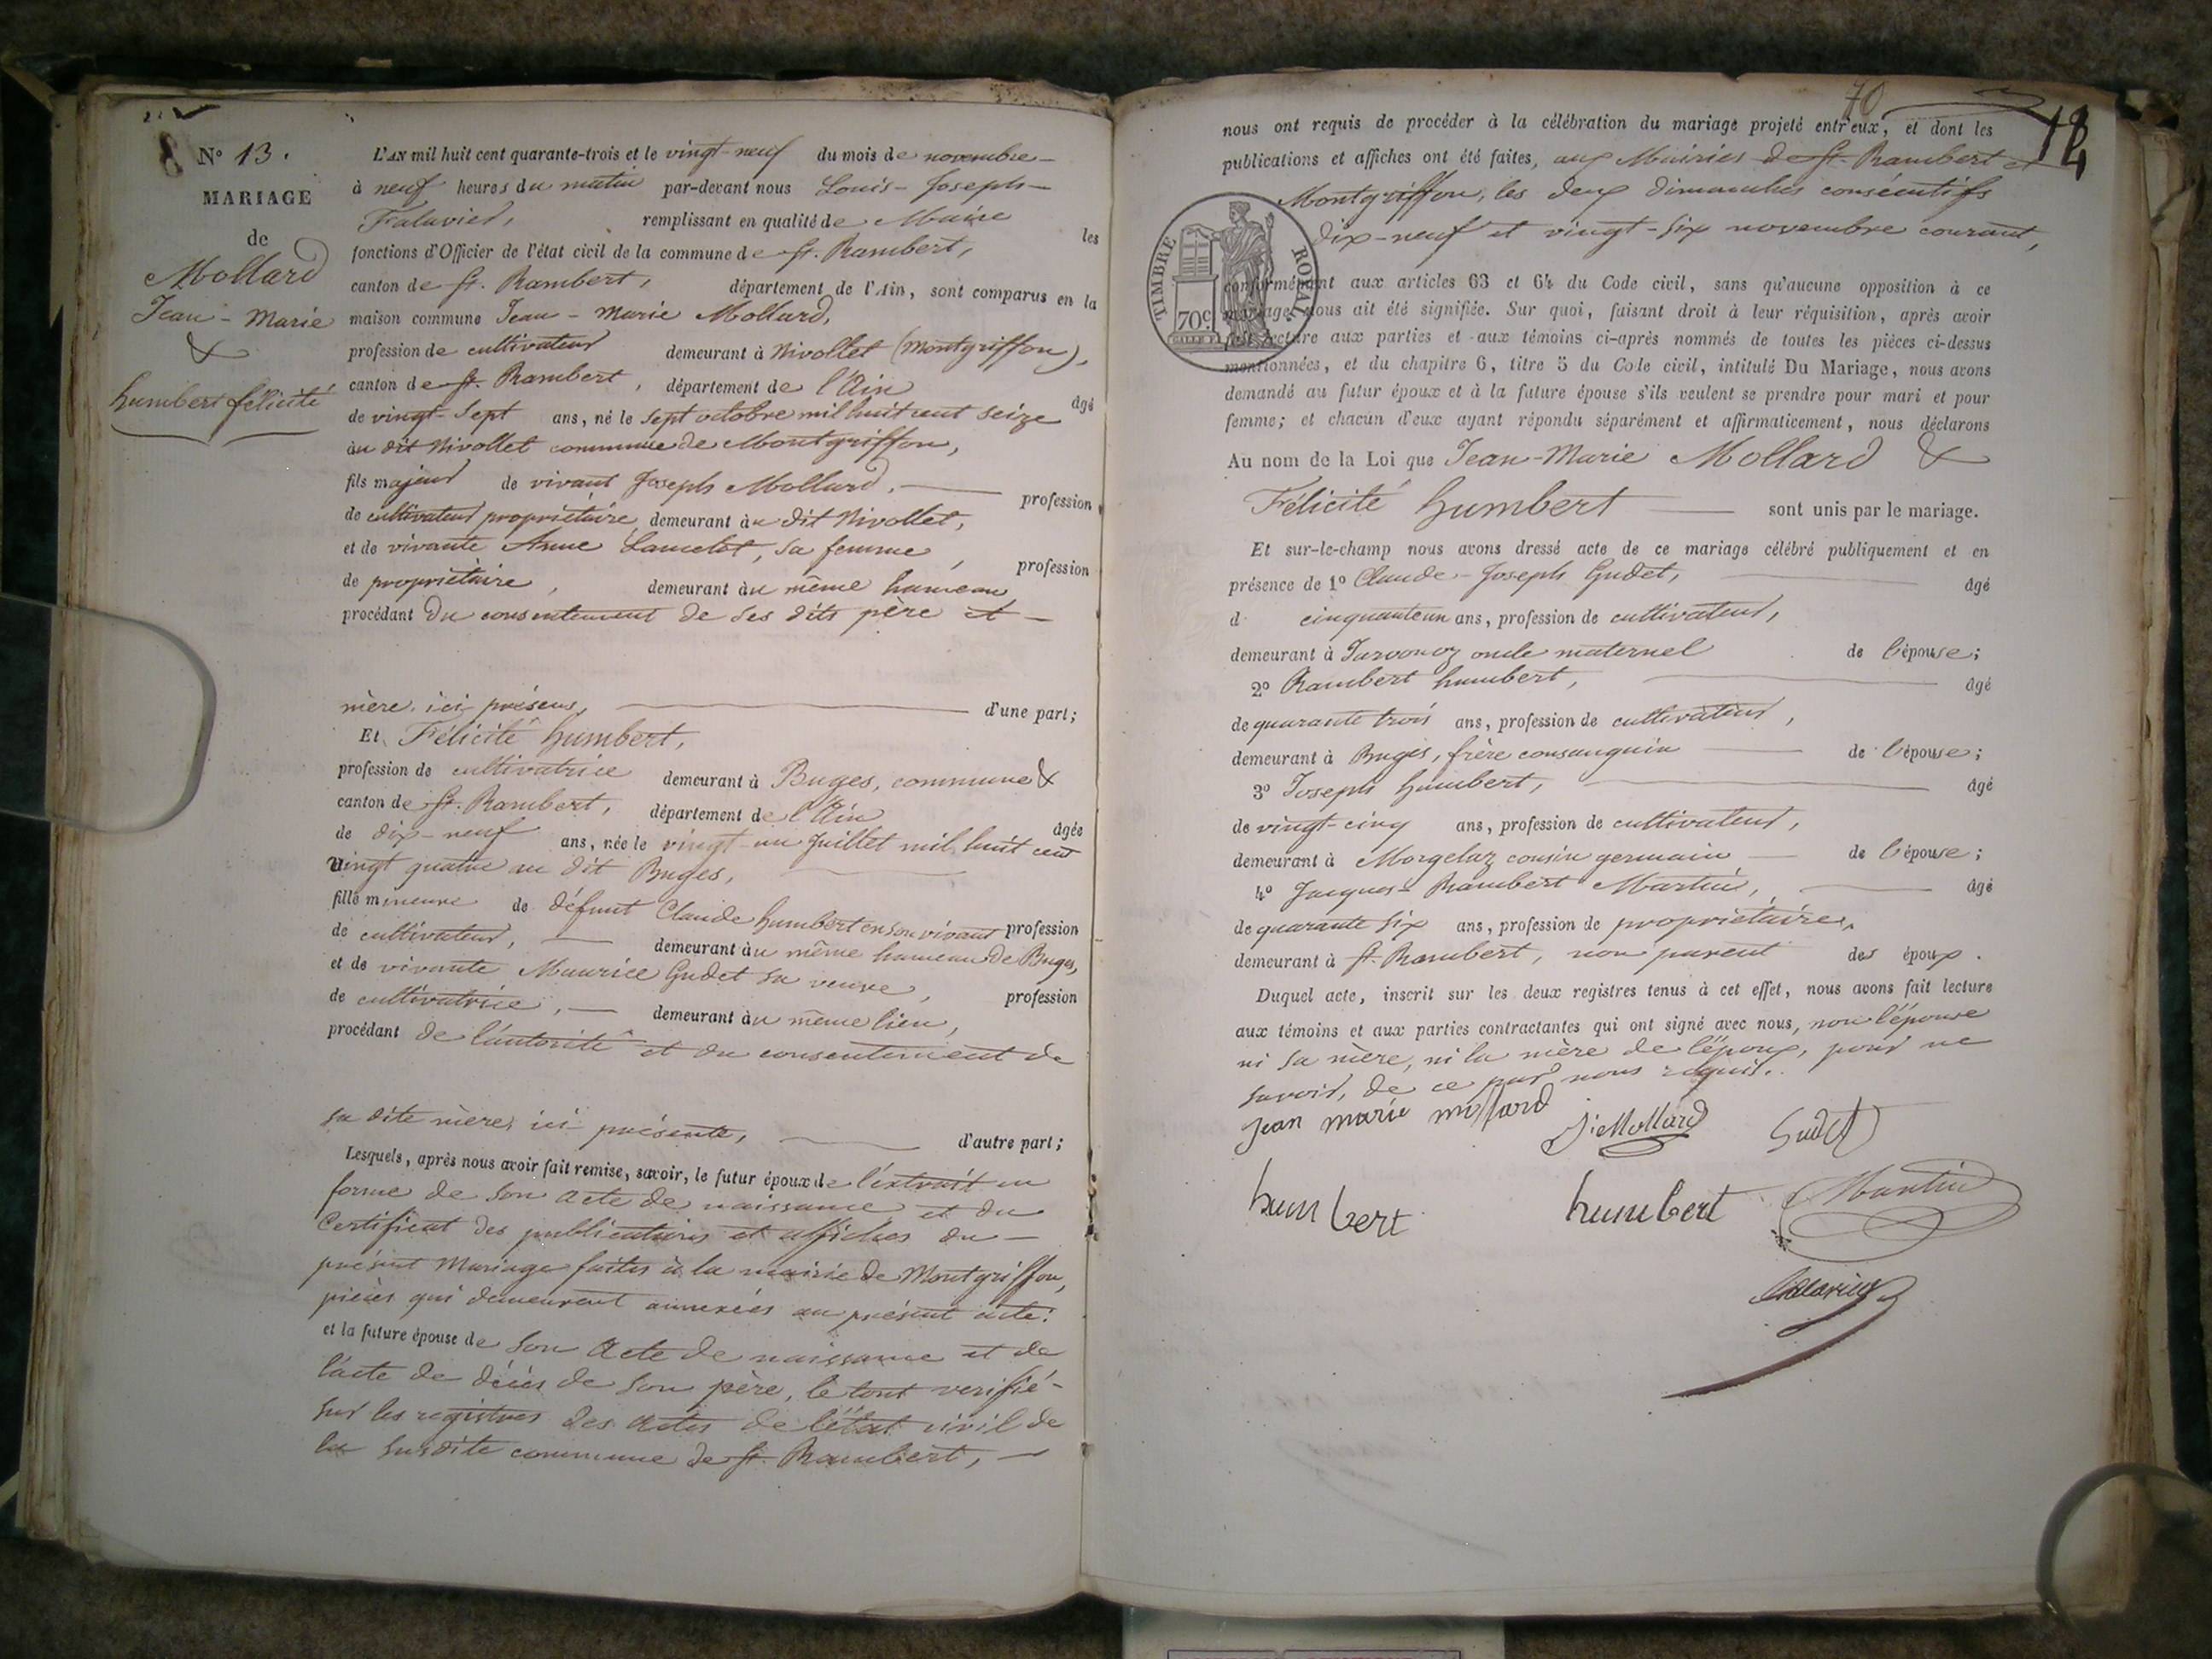 N° 13.
MARIAGE
de
Mollard
Jean-Marie
&
humbert félicité
L'AN mil huit cent quarante-trois et le vingt-neuf du mois de novembre
à neuf heures du matin par-devant nous Louis-Joseph-
remplissant en qualité de Maire les
fonctions d'Officier de l'état civil de la commune de St. Rambert,
canton de St. Rambert, département de l'Ain, sont comparus en la
maison commune Jean-Marie Mollard,
profession de cultivateur demeurant à Nivollet (Montgriffon),
canton de St. Rambert, département de l'Ain âgé
de vingt-sept ans, né le sept octobre mil huit cent seize
au dit Nivollet commune de Montgriffon,
fils majeur de vivant Joseph Mollard, profession
de cultivateur propriétaire demeurant au dit Nivollet,
et de vivante Anne Lancelot, sa femme, profession
de propriétaire, demeurant au même hameau
procédant du consentement de ses dits père et
mère, ici présens, d'une part;
Et Félicité humbert,
profession de cultivatrice demeurant à Buges, commune &
canton de St. Rambert, département de l'Ain âgée
de dix-neuf ans, née le vingt-un Juillet mil huit cent
vingt quatre au dit Buges,
fille mineure de défunt Claude humbert en son vivant profession
de cultivateur, demeurant au même hameau de Buges,
et de vivante Maurice Gudet sa veuve, profession
de cultivatrice, demeurant au même lieu,
procédant de l'autorité et du consentement de
sa dite mère, ici présente, d'autre part;
Lesquels, après nous avoir fait remise, savoir, le futur époux de l'extrait en
forme de son acte de naissance et du
Certificat des publications et affiches du
présent Mariage faites à la mairie de Montgriffon,
pièces qui demeurent annexées au présent acte:
et la future épouse de son Acte de naissance et de
l'acte de décès de son père, le tout verifié-
sur les registres des actes de l'état civil de
la susdite commune de St. Rambert,
70
nous ont requis de procéder à la célébration du mariage projeté entr'eux, et dont les
publications et affiches ont été faites, aux Mairies de St. Rambert et
Montgriffon, les deux dimanches consécutifs
dix-neuf et vingt-six novembre courant,
TIMBRE ROYAL
70c
conformément aux articles 63 et 64 du Code civil, sans qu'aucune opposition à ce
mariage nous ait été signifiée. Sur quoi, faisant droit à leur réquisition, après avoir
fait lecture aux parties et aux témoins ci-après nommés de toutes les pièces ci-dessus
mentionnées, et du chapitre 6, titre 5 du Code civil, intitulé Du Mariage, nous avons
demandé au futur époux et à la future épouse s'ils veulent se prendre pour mari et pour
femme; et chacun d'eux ayant répondu séparément et affirmativement, nous déclarons
Au nom de la Loi que Jean-Marie Mollard &
Félicité humbert sont unis par le mariage.
Et sur-le-champ nous avons dressé acte de ce mariage célébré publiquement et en
présence de 1° Claude-Joseph Gudet, âgé
d cinquante un ans, profession de cultivateur,
demeurant à oncle maternel de l'épouse;
2° Rambert humbert, âgé
de quarante trois ans, profession de cultivateur,
demeurant à Buges, frère consanguin de l'épouse;
3° Joseph humbert, âgé
de vingt-cinq ans, profession de cultivateur,
demeurant à Morgelaz cousin germain de l'épouse;
4° Jacques-Rambert Martin, âgé
de quarante six ans, profession de propriétaire,
demeurant à St. Rambert, non parent des époux.
Duquel acte, inscrit sur les deux registres tenus à cet effet, nous avons fait lecture
aux témoins et aux parties contractantes qui ont signé avec nous, non l'épouse
ni sa mère, ni la mère de l'époux, pour ne
savoir, de ce par nous requis.
Jean marie mollard J. Mollard Gudet
humbert humbert Martin